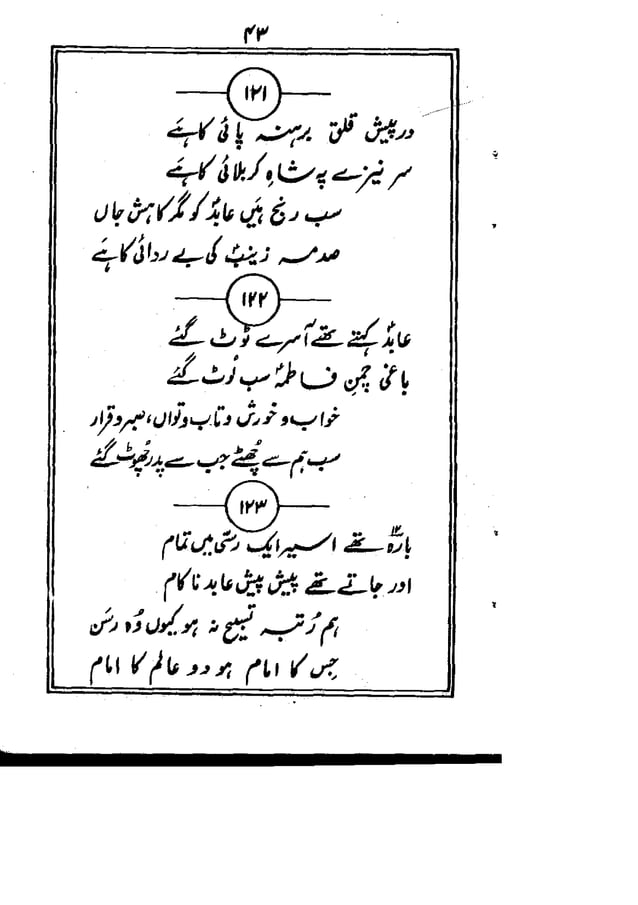 ۴۳
۱۲۱
درپیش قلق برہنہ پائی کا ہے
سر نیزے پہ شاہِ کربلائی کا ہے
سب رنج ہیں عابدؑ کو مگر کاہش جاں
صدمہ زینبؑ کی بے ردائی کا ہے
۱۲۲
عابدؑ کہتے تھے آسرے ٹوٹ گئے
باغی چمنِ فاطمہؑ سب لُوٹ گئے
خواب و خورش و تاب و تواں، صبر و قرار
سب ہم سے چُھٹے جب سے پدر چُھوٹ گئے
۱۲۳
بارہ۱۲ تھے اسیر ایک رسّی میں تمام
اور جاتے تھے پیش پیش عابد ناکام
ہم رُتبہ تسبیح نہ ہو کیوں وُہ رسَن
جِس کا امام ہو دو عالم کا امام